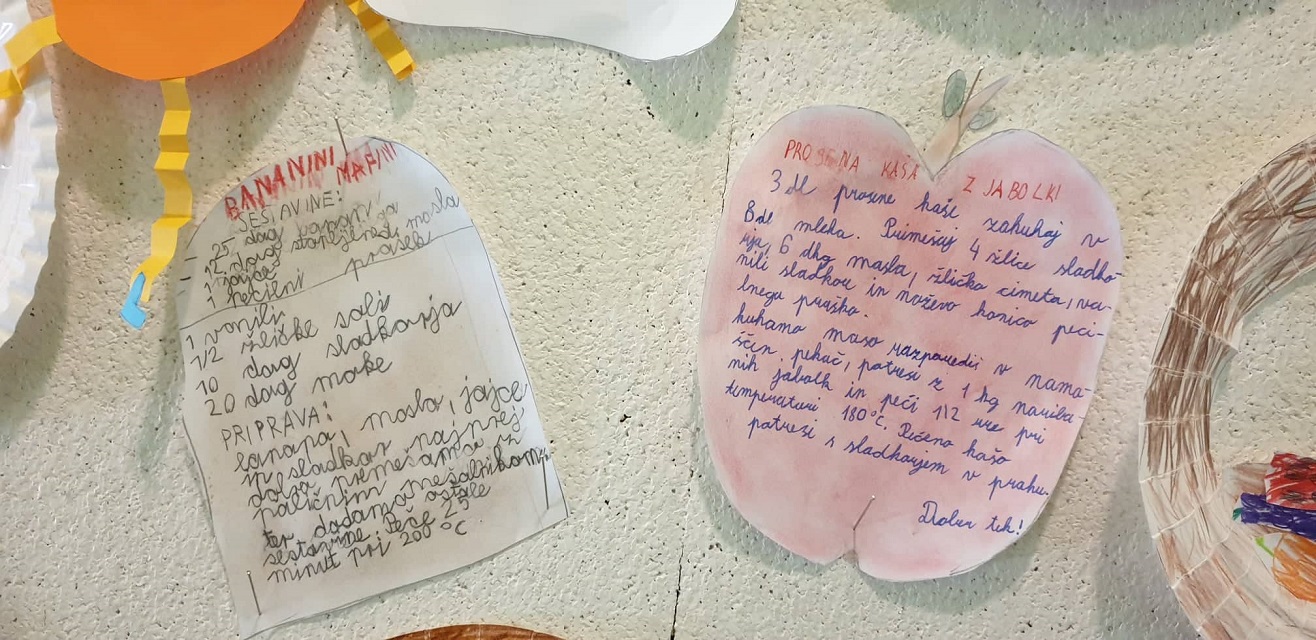 BANANINI MAFINI
SESTAVINE:
25 dag banan
12 dag stopljenega masla
1 jajce
1 pecilni prašek
1 vanili
1/2 žličke soli
10 dag sladkorja
20 dag moke
PRIPRAVA:
banana, masla, jajce
in sladkor najprej
dobro premešamo s
paličnim mešalnikom,
ter dodamo ostale
sestavine. Peče 25
minut pri 200 °C
PROSENA KAŠA Z JABOLKI
3 dl prosene kaše zakuhaj v
8 dl mleka. Primešaj 4 žlice sladko-
rja, 6 dkg masla, žličko cimeta, va-
nili sladkor in noževo konico peci-
lnega praška.
kuhamo maso razporedii v nama-
ščen pekač, potresi z 1 kg nariba-
nih jabolk in peči 1/2 ure pri
temperaturi 180°C. Pečeno kašo
potresi s sladkorjem v prahu.
Dober tek!